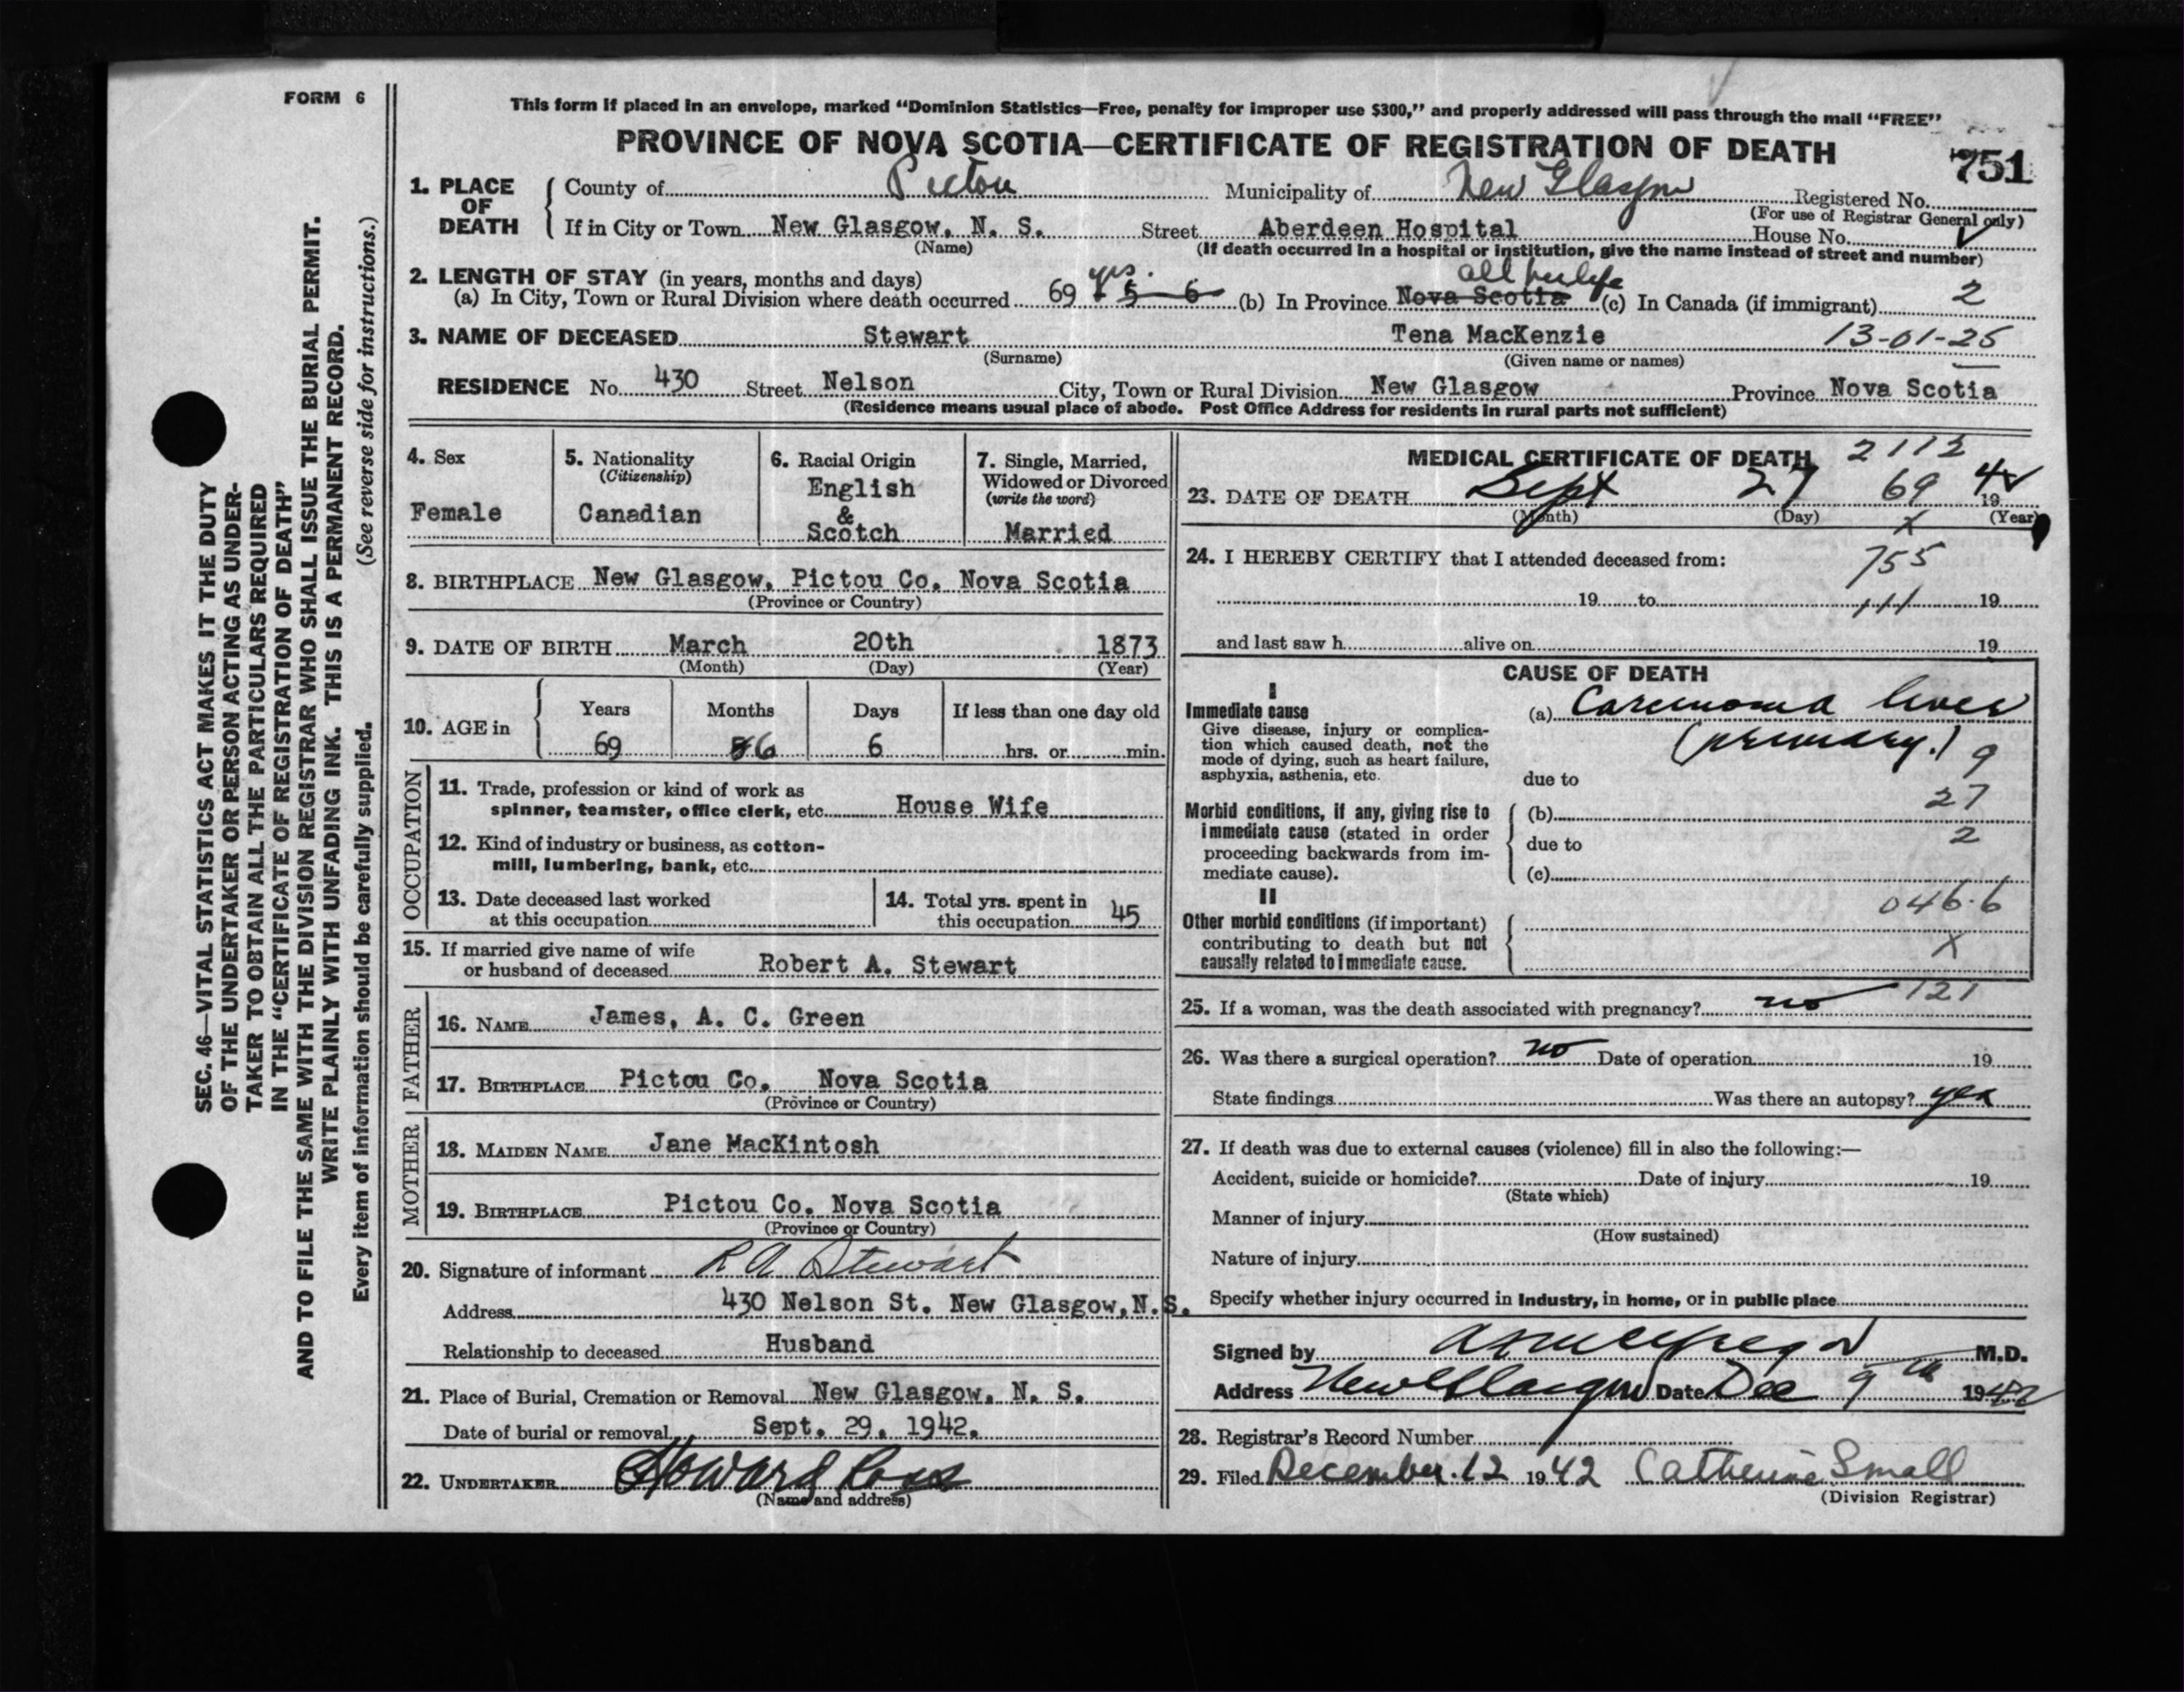 FORM 6
SEC. 46—VITAL STATISTICS ACT MAKES IT THE DUTY
OF THE UNDERTAKER OR PERSON ACTING AS UNDER-
TAKER TO OBTAIN ALL THE PARTICULARS REQUIRED
IN THE "CERTIFICATE OF REGISTRATION OF DEATH"
AND TO FILE THE SAME WITH THE DIVISION REGISTRAR WHO SHALL ISSUE THE BURIAL PERMIT.
WRITE PLAINLY WITH UNFADING INK. THIS IS A PERMANENT RECORD.
Every item of information should be carefully supplied. (See reverse side for instructions.)
This form if placed in an envelope, marked "Dominion Statistics—Free, penalty for improper use $300," and properly addressed will pass through the mail "FREE"
PROVINCE OF NOVA SCOTIA—CERTIFICATE OF REGISTRATION OF DEATH
751
1. PLACE OF DEATH County of Pictou Municipality of New Glasgow Registered No.
(For use of Registrar General only)
If in City or Town New Glasgow, N. S. Street Aberdeen Hospital House No.
(Name) (If death occurred in a hospital or institution, give the name instead of street and number)
2. LENGTH OF STAY (in years, months and days) yrs. all her life
(a) In City, Town or Rural Division where death occurred 69 5 6 (b) In Province Nova Scotia (c) In Canada (if immigrant) 2
3. NAME OF DECEASED Stewart Tena MacKenzie 13-01-25
(Surname) (Given name or names)
RESIDENCE No. 430 Street Nelson City, Town or Rural Division New Glasgow Province Nova Scotia
(Residence means usual place of abode. Post Office Address for residents in rural parts not sufficient)
4. Sex
Female
5. Nationality
(Citizenship)
Canadian
6. Racial Origin
English
&
Scotch
7. Single, Married,
Widowed or Divorced
(write the word)
Married
8. BIRTHPLACE New Glasgow, Pictou Co. Nova Scotia
(Province or Country)
9. DATE OF BIRTH March 20th 1873
(Month) (Day) (Year)
10. AGE in Years Months Days If less than one day old
69 6 6 hrs. or min.
OCCUPATION
11. Trade, profession or kind of work as
spinner, teamster, office clerk, etc. House Wife
12. Kind of industry or business, as cotton-
mill, lumbering, bank, etc.
13. Date deceased last worked
at this occupation
14. Total yrs. spent in
this occupation 45
15. If married give name of wife
or husband of deceased Robert A. Stewart
FATHER
16. NAME James, A. C. Green
17. BIRTHPLACE Pictou Co. Nova Scotia
(Province or Country)
MOTHER
18. MAIDEN NAME Jane MacKintosh
19. BIRTHPLACE Pictou Co. Nova Scotia
(Province or Country)
20. Signature of informant R A Stewart
Address 430 Nelson St. New Glasgow, N.S.
Relationship to deceased Husband
21. Place of Burial, Cremation or Removal New Glasgow, N. S.
Date of burial or removal Sept. 29, 1942.
22. UNDERTAKER Howard Ross
(Name and address)
MEDICAL CERTIFICATE OF DEATH 2113
23. DATE OF DEATH Sept 27 69 1942
(Month) (Day) x (Year)
24. I HEREBY CERTIFY that I attended deceased from: 755
19 to 111 19
and last saw h alive on 19
CAUSE OF DEATH
I
Immediate cause
Give disease, injury or complica-
tion which caused death, not the
mode of dying, such as heart failure,
asphyxia, asthenia, etc.
(a) Carcinoma liver
(primary.) 9
due to
27
Morbid conditions, if any, giving rise to
immediate cause (stated in order
proceeding backwards from im-
mediate cause).
(b)
due to 2
(c)
II
046.6
Other morbid conditions (if important)
contributing to death but not
causally related to immediate cause.
X
25. If a woman, was the death associated with pregnancy? no 121
26. Was there a surgical operation? no Date of operation 19
State findings Was there an autopsy? yes
27. If death was due to external causes (violence) fill in also the following:—
Accident, suicide or homicide? Date of injury 19
(State which)
Manner of injury
(How sustained)
Nature of injury
Specify whether injury occurred in Industry, in home, or in public place
Signed by M.D.
Address New Glasgow Date Dec 9th 1942
28. Registrar's Record Number
29. Filed December 12 1942 Catherine Small
(Division Registrar)